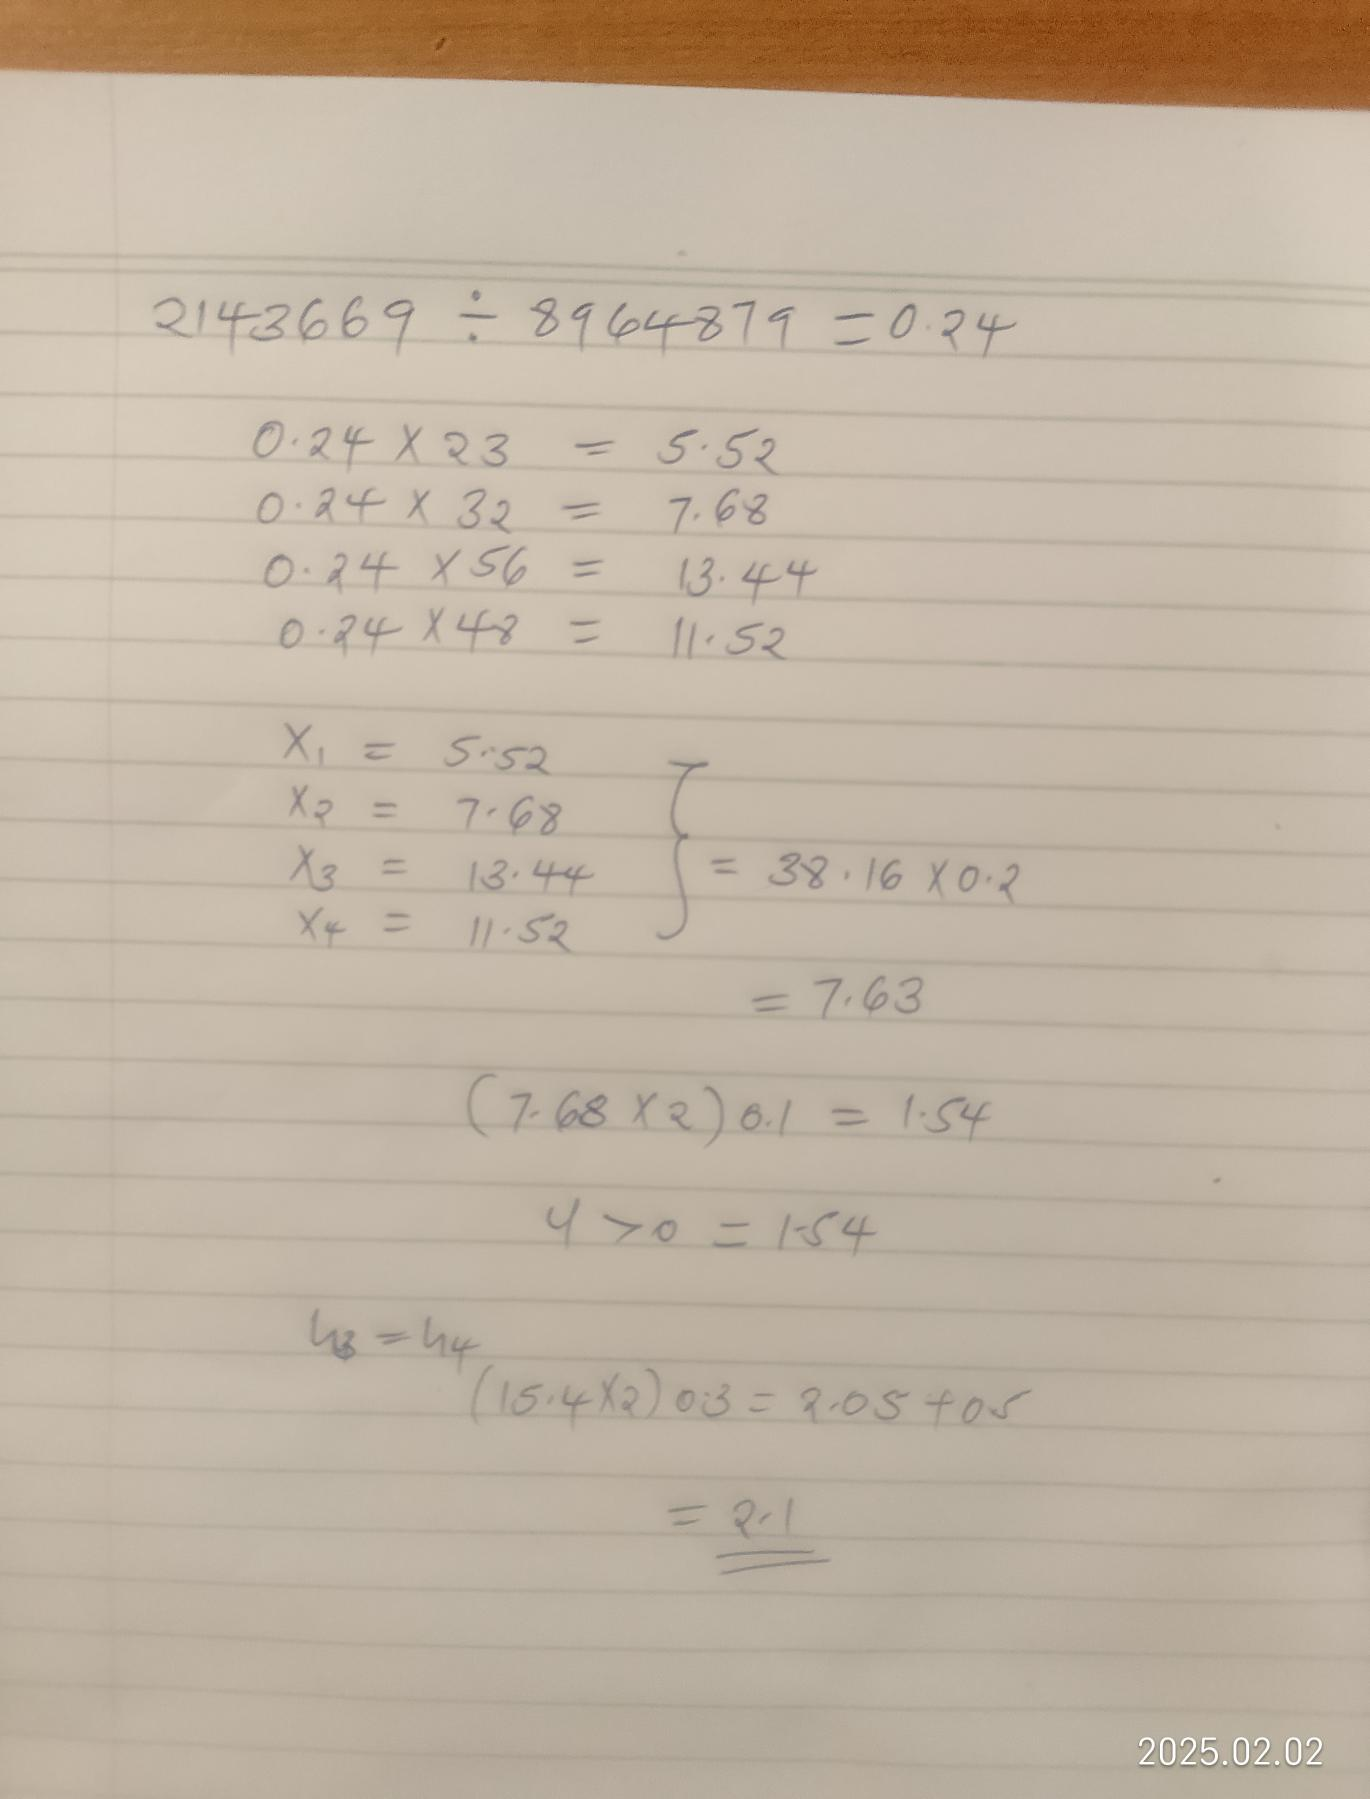 2143669 ÷ 8964879 = 0.24
0.24 X 23 = 5.52
0.24 X 32 = 7.68
0.24 X 56 = 13.44
0.24 X 48 = 11.52
X₁ = 5.52
X₂ = 7.68
X₃ = 13.44
= 38.16 X 0.2
X₄ = 11.52
= 7.63
(7.68 X 2) 0.1 = 1.54
4 > 0 = 1.54
h₃ = h₄
(15.4 X 2) 0.3 = 2.05 + 05
= 2.1
2025.02.02